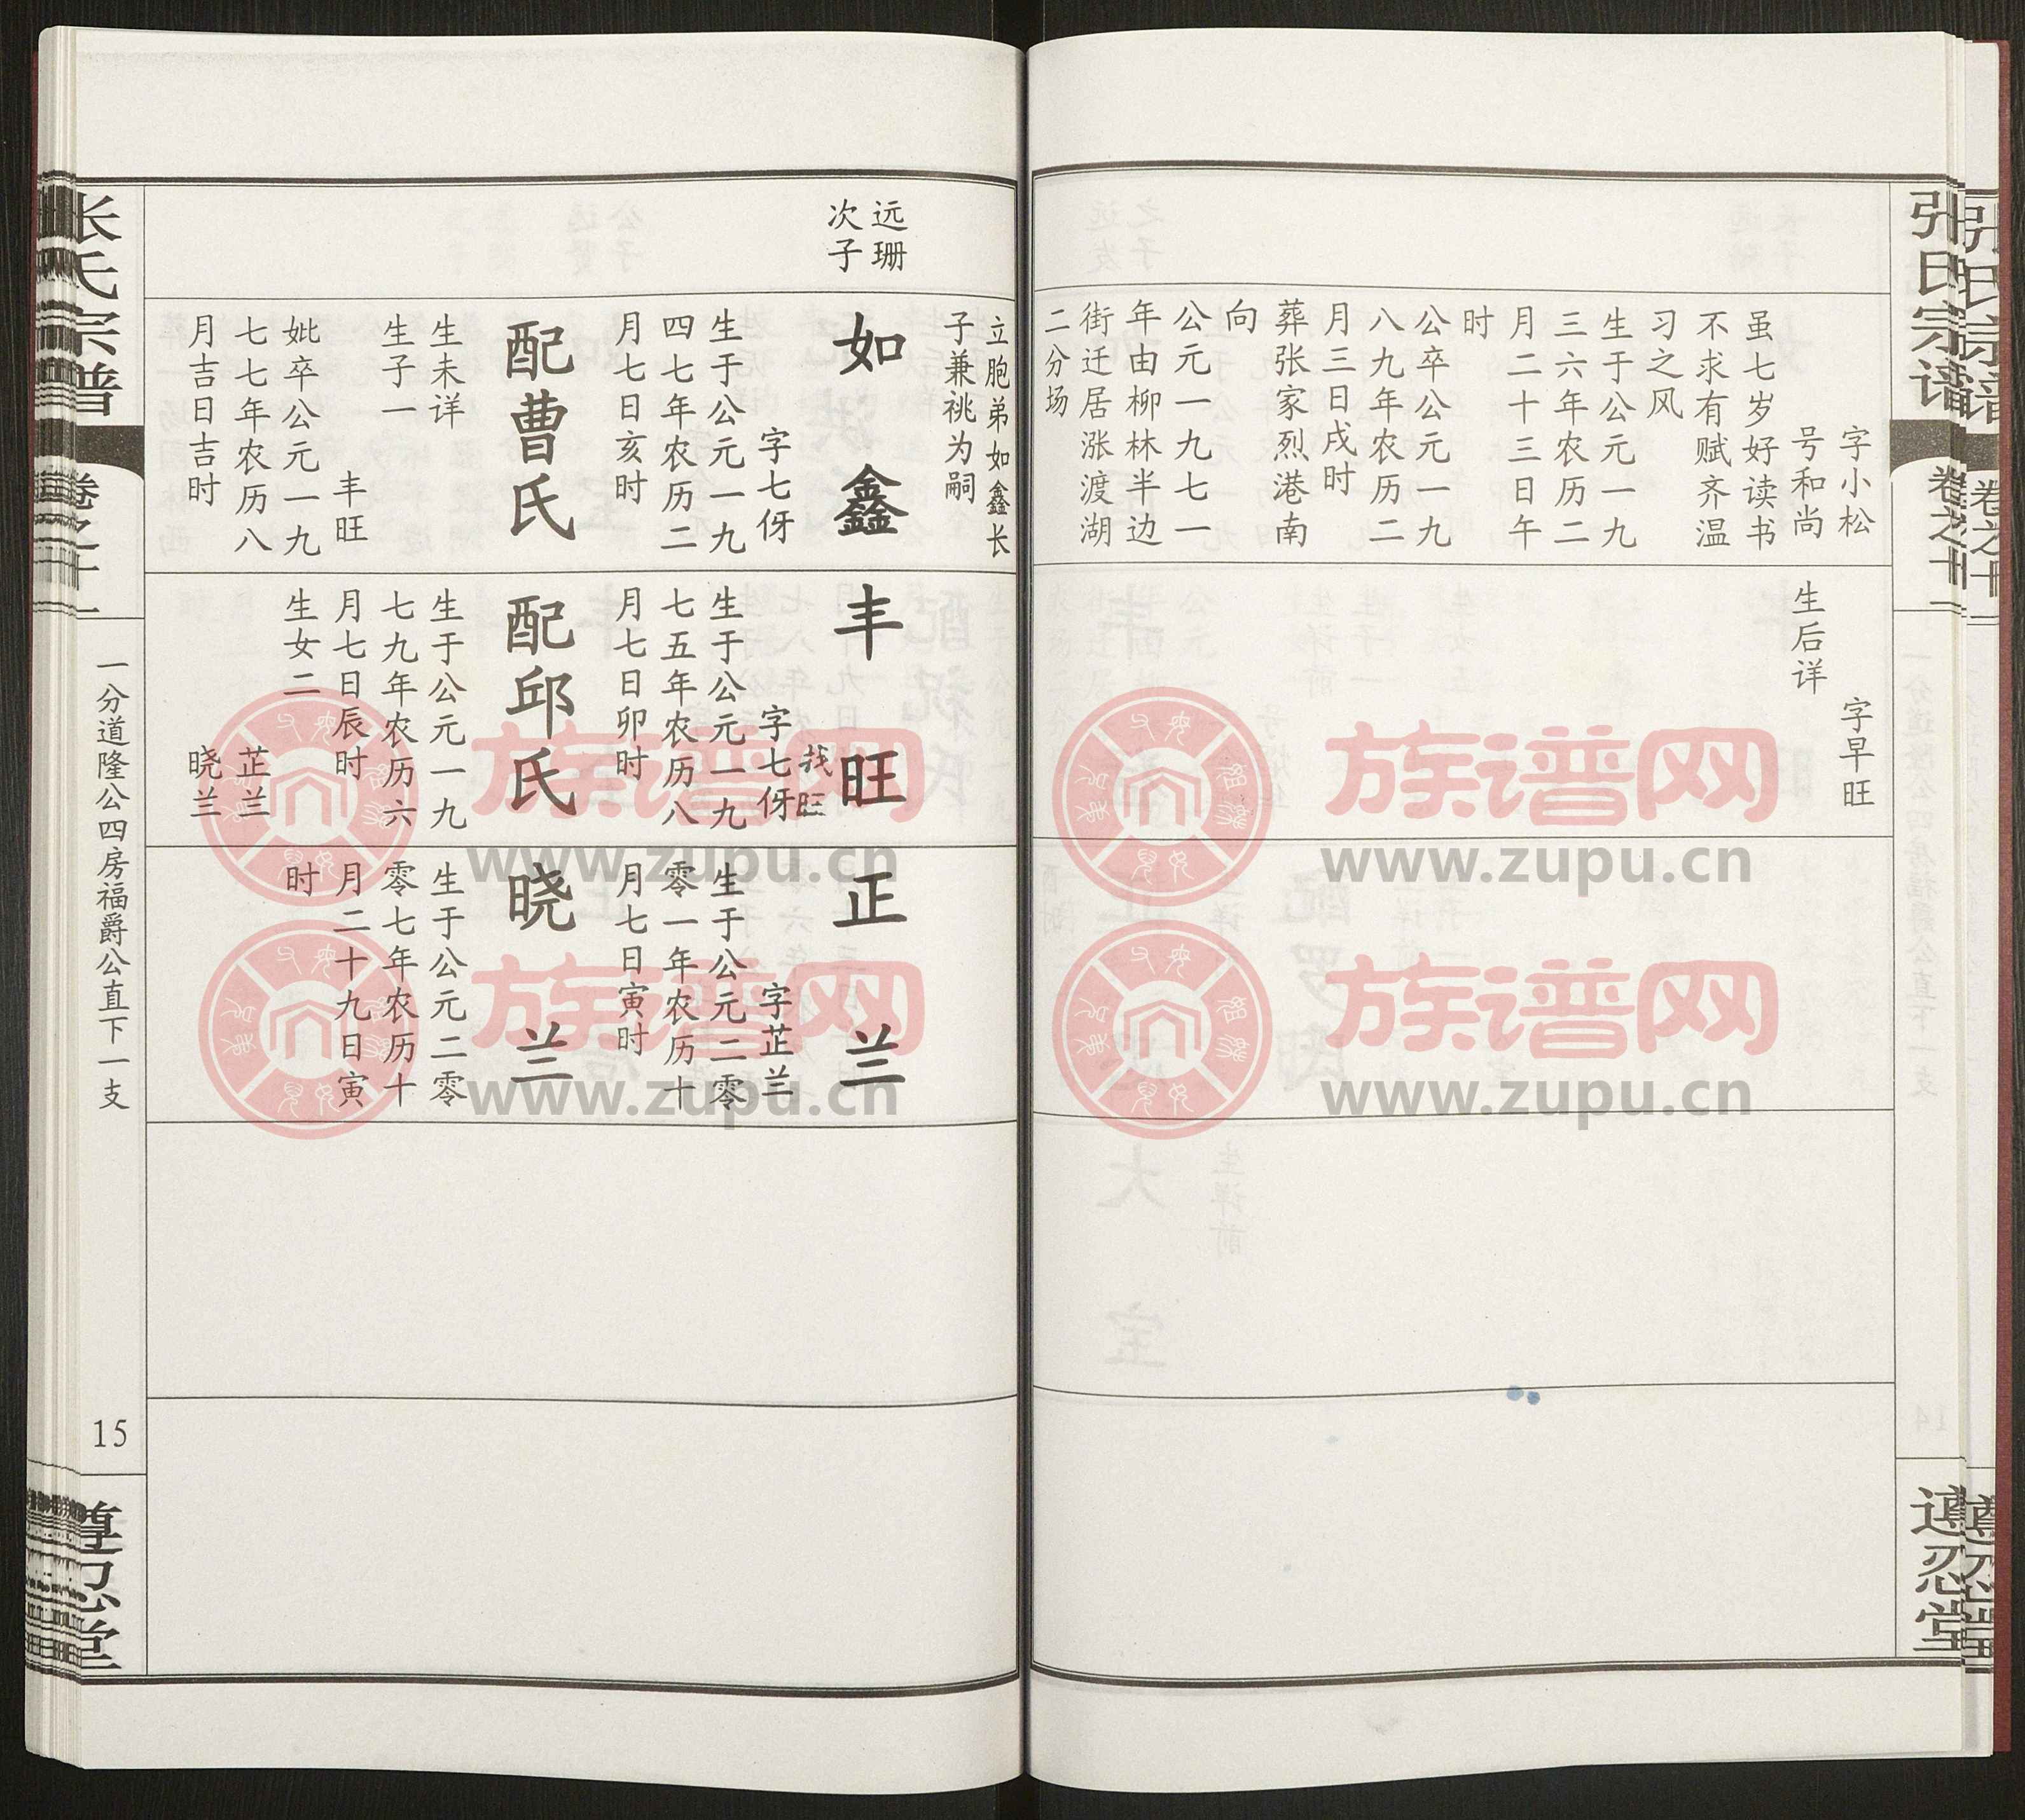 张氏宗谱
卷之十一
遵忍堂
字小松
号和尚
虽七岁好读书
不求有赋齐温
习之风
生于公元一九
三六年农历二
月二十三日午
时
公卒公元一九
八九年农历二
月三日戌时
葬张家烈港南
向
公元一九七一
年由柳林半边
街迁居涨渡湖
二分场
字早旺
生后详
立胞弟如鑫长
子兼祧为嗣
远珊
次子
如鑫
字七伢
生于公元一九
四七年农历二
月七日亥时
配曹氏
生未详
生子一
丰旺
妣卒公元一九
七七年农历八
月吉日吉时
丰旺
找旺
字七伢
生于公元一九
七五年农历八
月七日卯时
配邱氏
生于公元一九
七九年农历六
月七日辰时
生女二
芷兰
晓兰
正兰
字芷兰
生于公元二零
零一年农历十
月七日寅时
晓兰
生于公元二零
零七年农历十
月二十九日寅
时
张氏宗谱
卷之十一
一分道隆公四房福爵公直下一支
15
遵忍堂
族谱网
www.zupu.cn
族谱网
www.zupu.cn
族谱网
www.zupu.cn
族谱网
www.zupu.cn